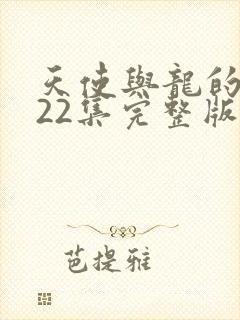 天使與龍的
22集完整版
芭提雅